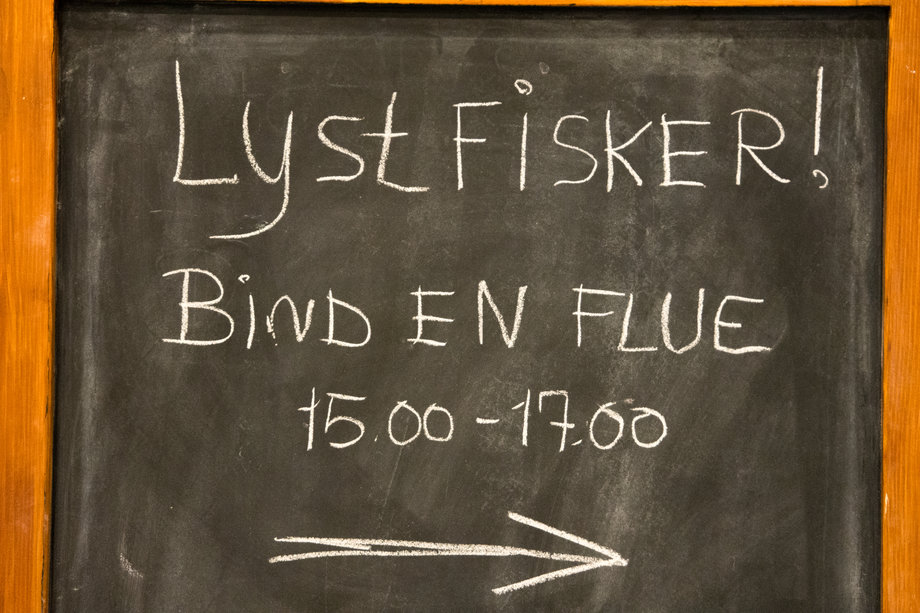 Lyst FiSKER!
BiND EN FLUE
15.00 - 17.00